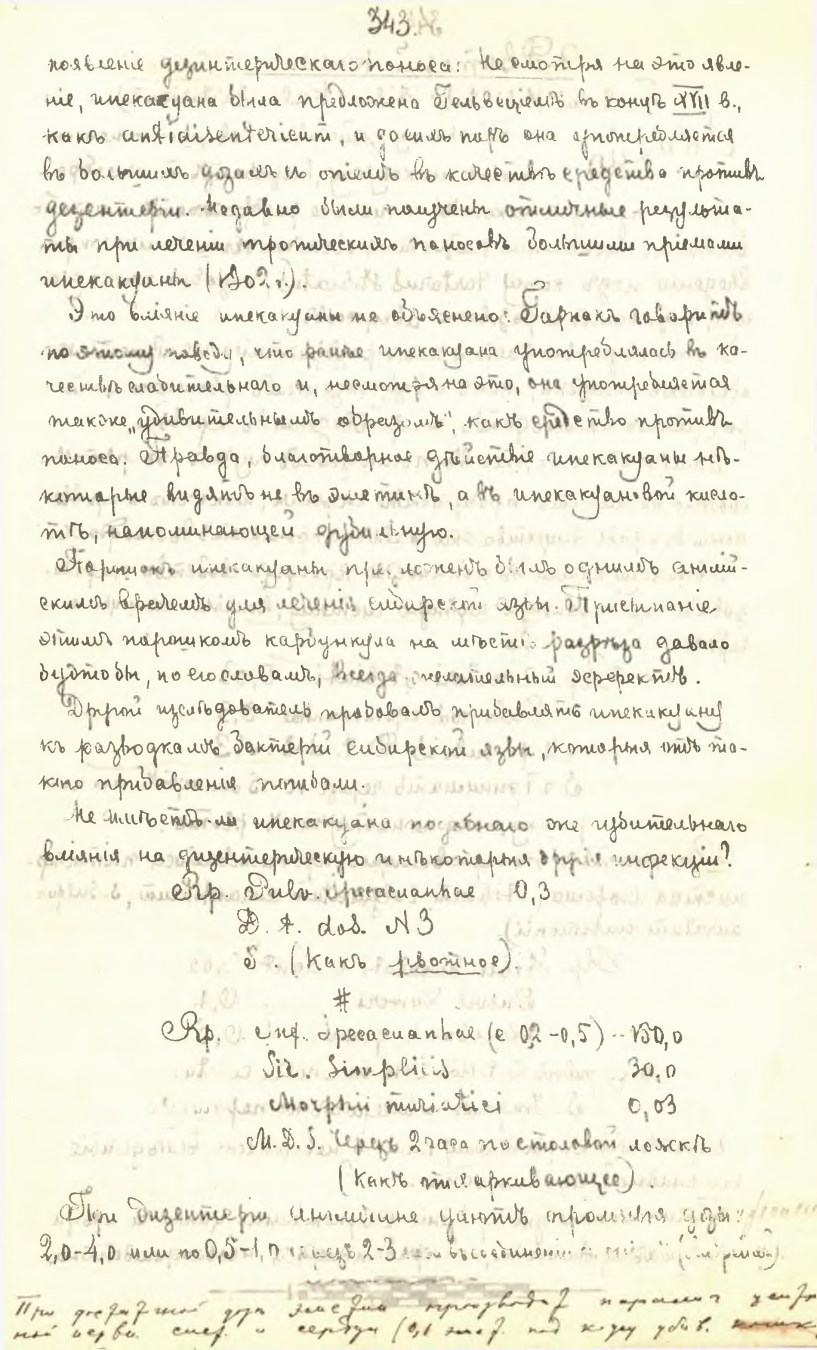 343.
появленіе дезинтерическаго поноса. Несмотря на это явле-
ніе, ипекакуана была предложена Гельвеціемъ въ концѣ XVII в.,
какъ antidisentericum, и до сихъ поръ она употребляется
въ большихъ дозахъ съ опіемъ въ качествѣ средства противъ
дезентеріи. Недавно были получены отличные результа-
ты при леченіи тропическихъ поносовъ большими пріемами
ипекакуаны (до 2 г.).
Это вліяніе ипекакуаны не объяснено. Гарнакъ говоритъ
по этому поводу, что ранѣе ипекакуана употреблялась въ ка-
чествѣ слабительнаго и, несмотря на это, она употребляется
также „удивительнымъ образомъ“, какъ средство противъ
поноса. Правда, благотворное дѣйствіе ипекакуаны нѣ-
которые видятъ не въ эметинѣ, а въ ипекакуановой кисло-
тѣ, напоминающей дубильную.
Порошокъ ипекакуаны предложенъ былъ однимъ англій-
скимъ врачемъ для леченія сибирской язвы. Присыпаніе
этимъ порошкомъ карбункула на мѣстѣ разрѣза давало
будто бы, по его словамъ, всегда желательный эффектъ.
Другой изслѣдователь пробовалъ прибавлять ипекакуану
къ разводкамъ бактерій сибирской язвы, которыя отъ та-
кого прибавленія погибали.
Не имѣетъ-ли ипекакуана подобнаго же губительнаго
вліянія на дизентерическую и нѣкоторыя другія инфекціи?
Rp. Pulv. Ipecacuanhae 0,3
D. t. dos. N 3
S. (Какъ рвотное).
#
Rp. Inf. Ipecacuanhae (e 0,2-0,5) - 150,0
Sir. Simplicis 30,0
Morphii muriatici 0,03
M. D. S. Черезъ 2 часа по столовой ложкѣ
(Какъ отхаркивающее).
При дизентеріи англичане даютъ громадныя дозы:
2,0-4,0 или по 0,5-1,0 черезъ 2-3 въ соединеніи съ
При доза производ паралич
нерв. сист. и сердца (0,1 под кожу убив.